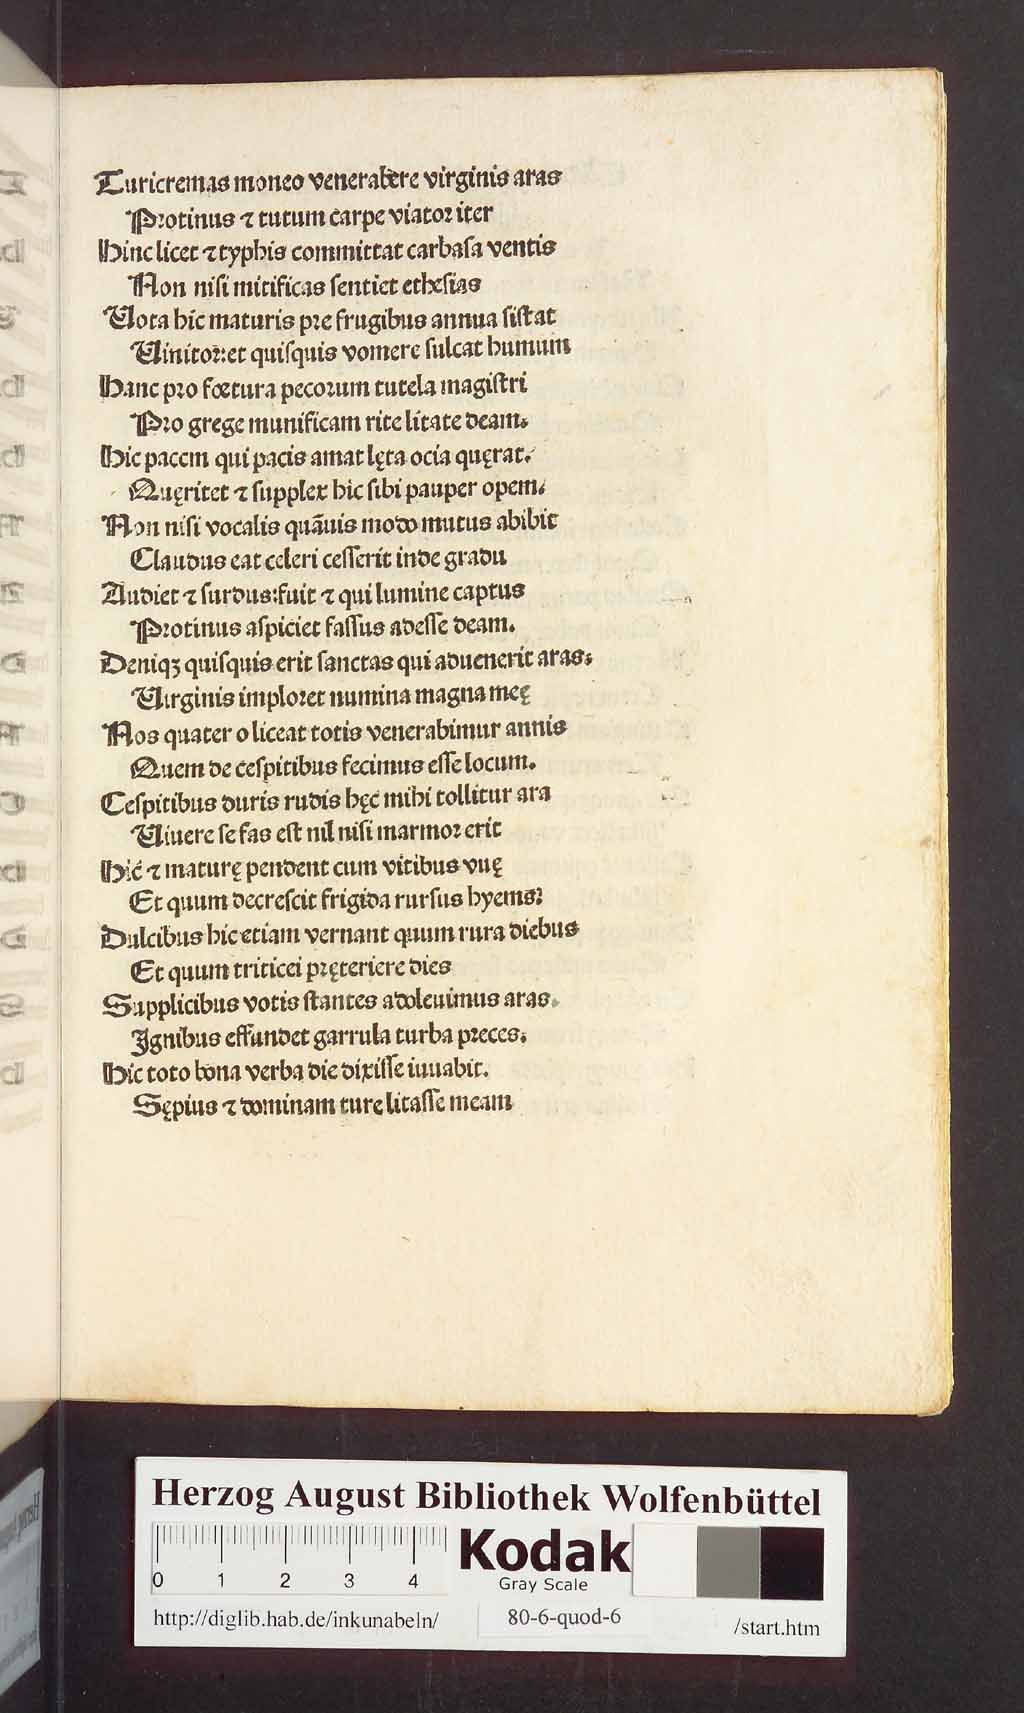 Turicremas moneo venerabere virginis aras
Protinus ⁊ tutum carpe viator iter
Hinc licet ⁊ typhis committat carbasa ventis
Non nisi mitificas sentiet ethesias
Uota hic maturis pre frugibus annua sistat
Uinitor: et quisquis vomere sulcat humum
Hanc pro fœtura pecorum tutela magistri
Pro grege munificam rite litate deam.
Hic pacem qui pacis amat lęta ocia quęrat.
Quęritet ⁊ supplex hic sibi pauper opem.
Non nisi vocalis quãuis modo mutus abibit
Claudus eat celeri cesserit inde gradu
Audiet ⁊ surdus: fuit ⁊ qui lumine captus
Protinus aspiciet fassus adesse deam.
Deniqꝫ quisquis erit sanctas qui aduenerit aras.
Uirginis imploret numina magna meę
Nos quater o liceat totis venerabimur annis
Quem de cespitibus fecimus esse locum.
Cespitibus duris rudis hęc mihi tollitur ara
Uiuere se fas est nil nisi marmor erit
Hic ⁊ maturę pendent cum vitibus vuę
Et quum decrescit frigida rursus hyems?
Dulcibus hic etiam vernant quum rura diebus
Et quum triticei pręteriere dies
Supplicibus votis stantes adoleuimus aras.
Ignibus effundet garrula turba preces.
Hic toto bona verba die dixisse iuuabit.
Sępius ⁊ dominam ture litasse meam
Herzog August Bibliothek Wolfenbüttel
0 1 2 3 4
Kodak
Gray Scale
http://diglib.hab.de/inkunabeln/ 80-6-quod-6 /start.htm